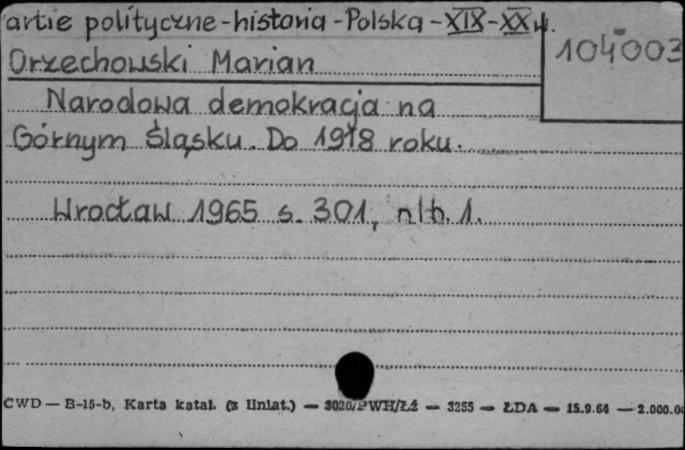 artie polityczne - historia - Polska - XIX - XX w.
104003
Orzechowski Marian
Narodowa demokracja na
Górnym Śląsku. Do 1918 roku.
Wrocław 1965 s. 301, nlb. 1.
CWD — B-15-b, Karta katal. (z liniat.) — 3020/PWH/Łź — 3255 — ŁDA — 15.9.64 — 2.000.0